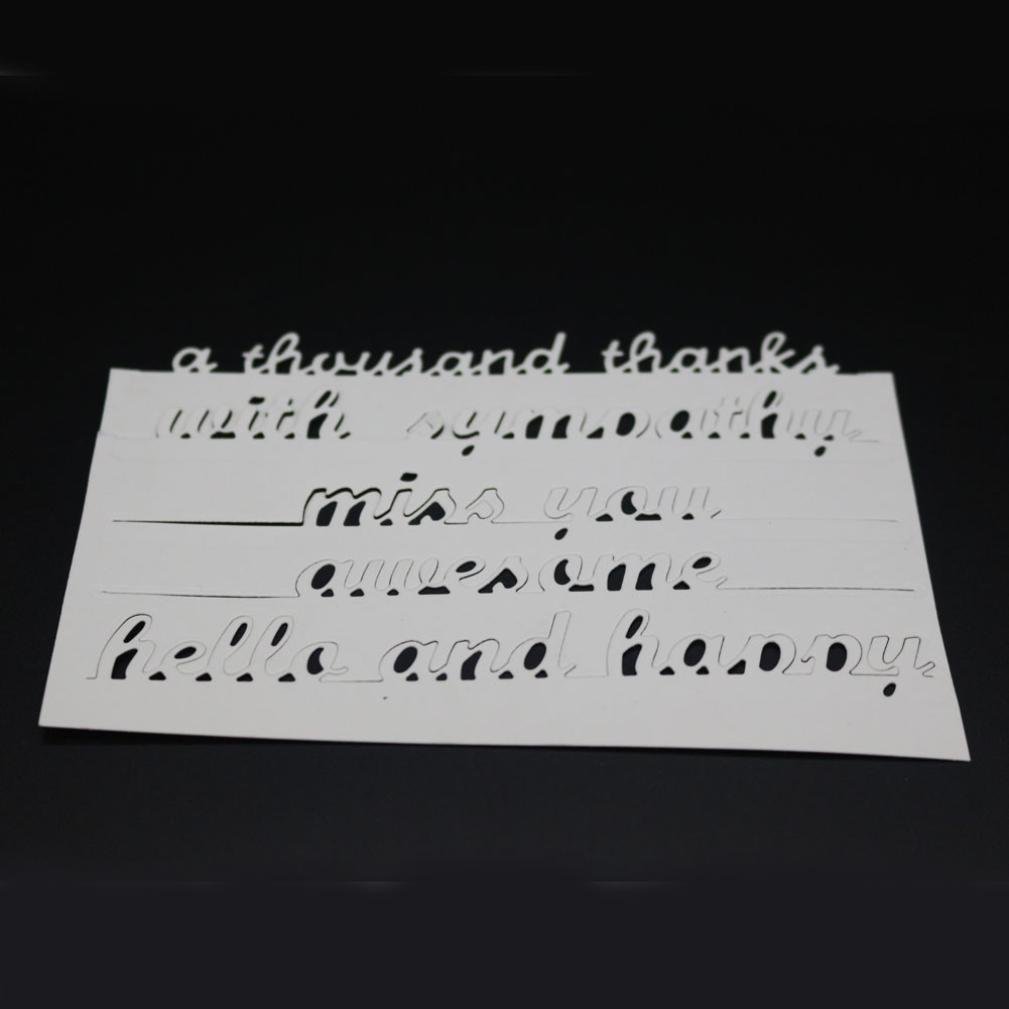 a thousand thanks
with sympathy
miss you
awesome
hello and happy